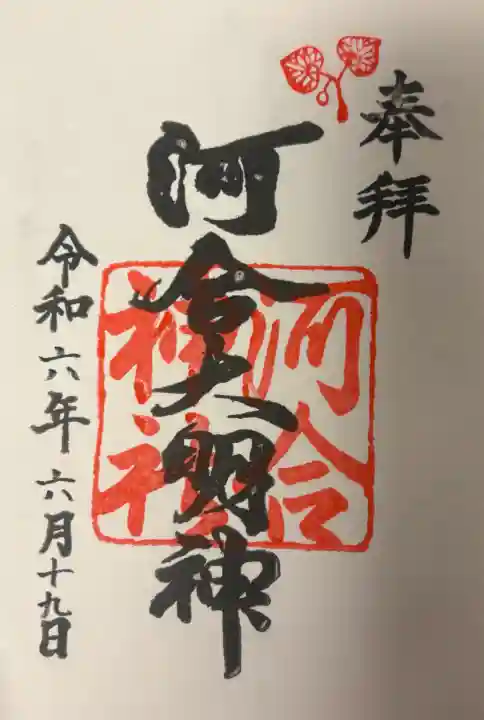 奉拝
河合大明神
河合神社
令和六年六月十九日